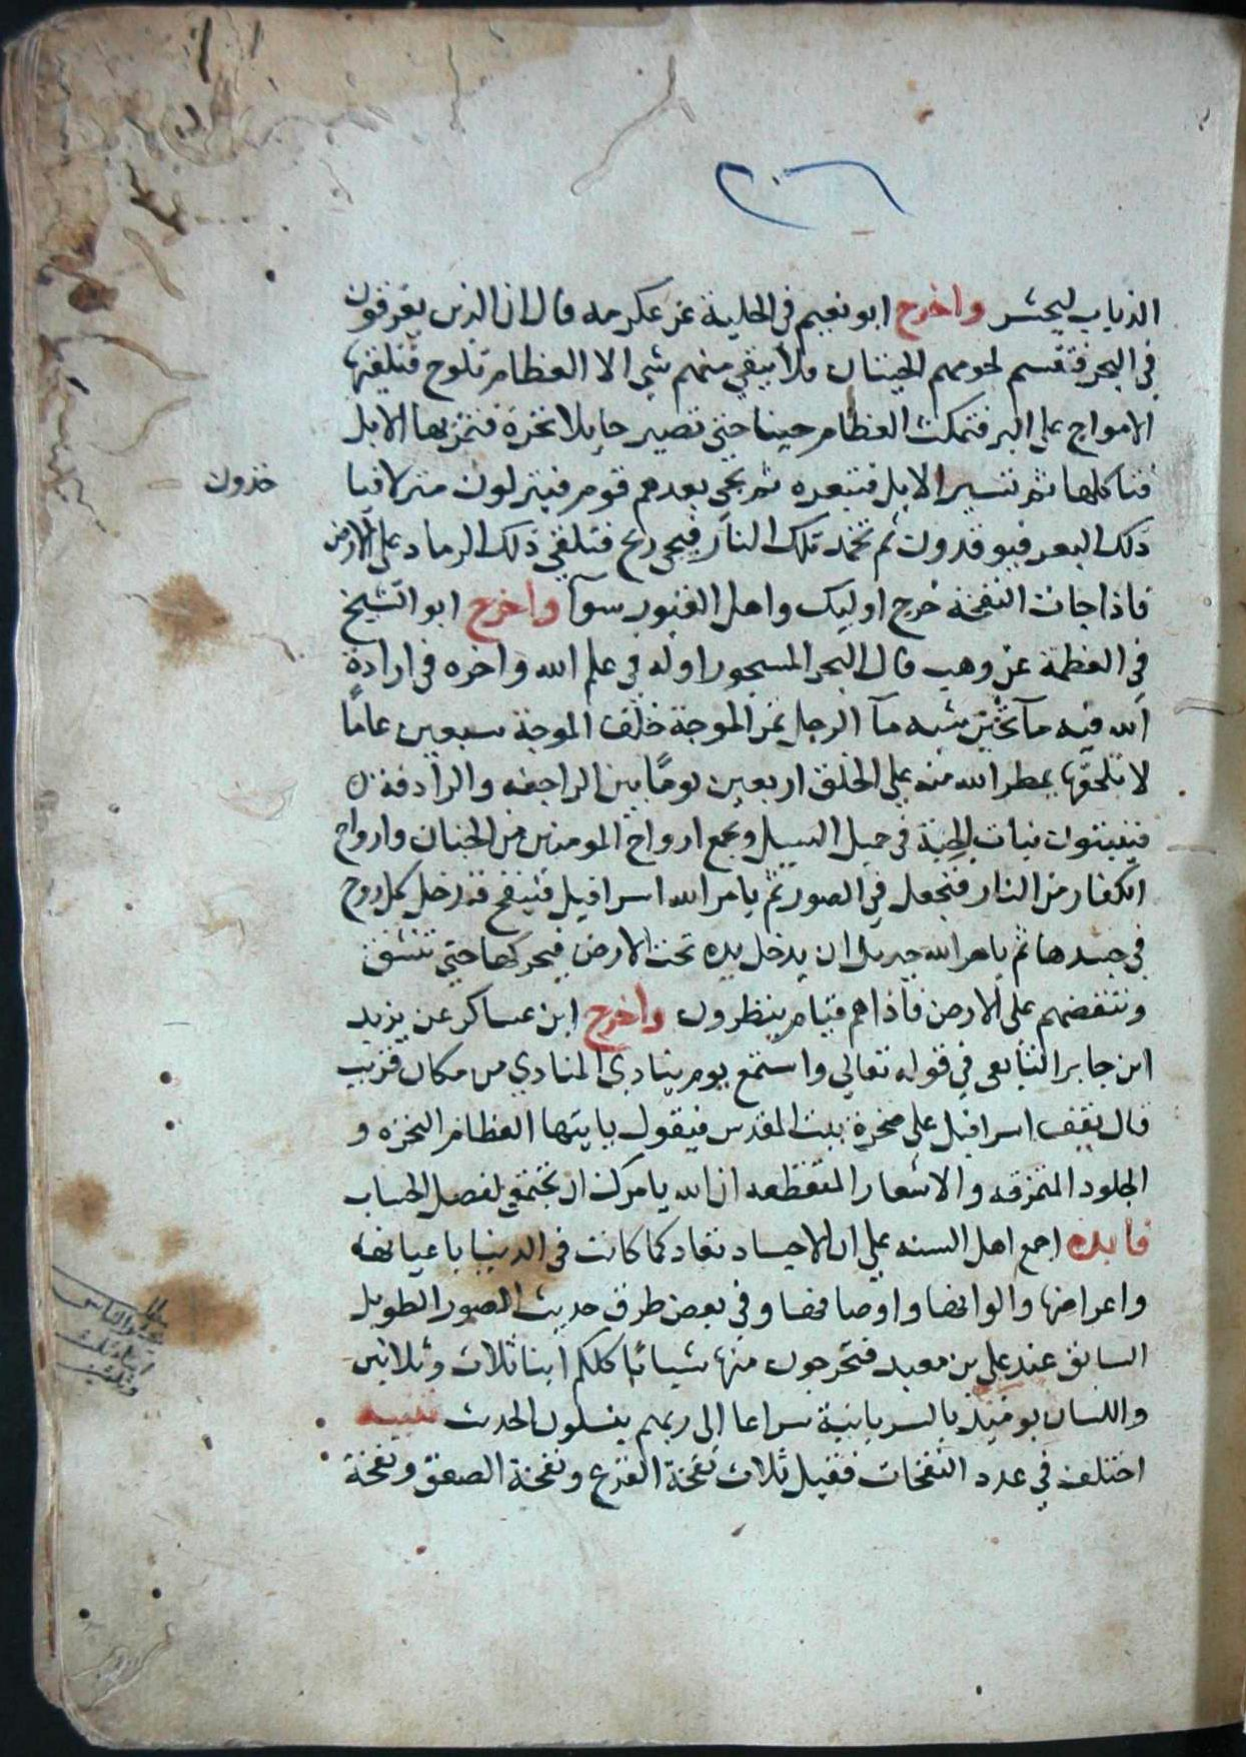 ٢٠٦
الذباب ليحشر واخرج ابو نعيم في الحلية عن عكرمه قال ان الذين يغرقون
في البحر فتقسم لحومهم الحيتان ولا يبقي منهم شي الا العظام تلوح فتلقيها
الامواج علي البر فتمكث العظام حينا حتي تصير حايلا نخرة فتمر بها الابل
فتاكلها ثم تسير الابل فتبعره ثم يجي بعدهم قوم فينزلون منزلا فيا
خذون
ذلك البعر فيوقدون ثم تخمد تلك النار فيجي ريح فتلقي ذلك الرماد علي الارض
فاذا جات النفخة خرج اوليك واهل القبور سوآ واخرج ابو الشيخ
في العظمة عن وهب قال البحر المسجور اوله في علم الله واخره في ارادة
الله فيه مآ ثخين شبه مآ الرجل تمر الموجة خلف الموجة سبعين عاما
لا تلحقها يمطر الله منه علي الخلق اربعين يوما بين الراجفه والرادفة
فينبتون نبات الحبة في حميل السيل ويجمع ارواح المومنين من الجنان وارواح
الكفار من النار فتجعل في الصور ثم يامر الله اسرافيل فينفخ فتدخل كل روح
في جسدها ثم يامر الله جبريل ان يدخل يده تحت الارض فيحركها حتي تنشق
وتنفضهم علي الارض فاذا هم قيام ينظرون واخرج ابن عساكر عن يزيد
ابن جابر التابعي في قوله تعالي واستمع يوم ينادي المنادي من مكان قريب
قال يقف اسرافيل علي صخرة بيت المقدس فيقول يايتها العظام النخره و
الجلود المتمزقه والاشعار المتقطعه ان الله يامرك ان تجتمعي لفصل الحساب
فايده اجمع اهل السنه علي ان الاجساد تعاد كما كانت في الدنيا باعيانها
واعراضها والوانها واوصافها وفي بعض طرق حديث الصور الطويل
السابق عند علي بن معبد فتخرجون منها شبابا كلكم ابنا ثلاث وثلاثين
واللسان يوميذ بالسريانية سراعا الي ربهم ينسلون الحدث تنبيه
اختلف في عدد النفخات فقيل ثلاث نفخة الفزع ونفخة الصعق ونفخة